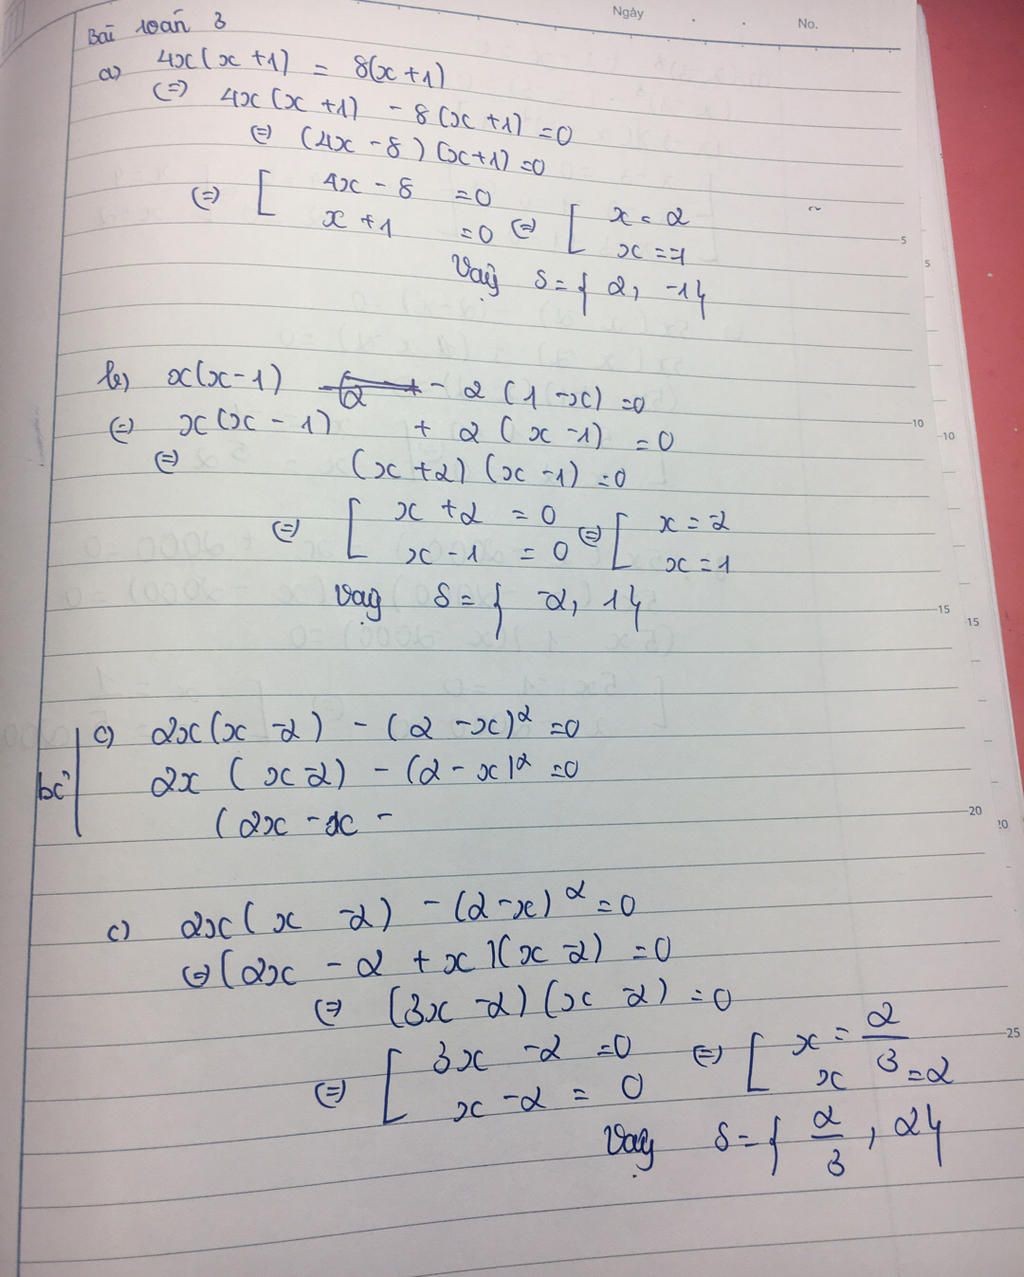 Ngày
No.
Bài toán 3
a) 4x(x+1) = 8(x+1)
(=) 4x(x+1) - 8(x+1) =0
(=) (4x-8)(x+1)=0
(=) [ 4x-8 =0
x+1 =0 (=) [ x=2
x=-1
Vậy S={2, -1}
b) x(x-1) - 2(1-x)=0
(=) x(x-1) + 2(x-1) =0
(=) (x+2)(x-1)=0
(=) [ x+2 =0
x-1 =0 (=) [ x=-2
x=1
Vậy S={ -2, 1}
c) 2x(x-2) - (2-x)² =0
bỏ
2x(x-2) - (2-x)² =0
(2x-x-
c) 2x(x-2) - (2-x)² =0
(=) (2x-2+x)(x-2) =0
(=) (3x-2)(x-2) =0
(=) [ 3x-2 =0
x-2 =0 (=) [ x= 2/3
x=2
Vậy S={ 2/3, 2}
5
5
10
10
15
15
20
25